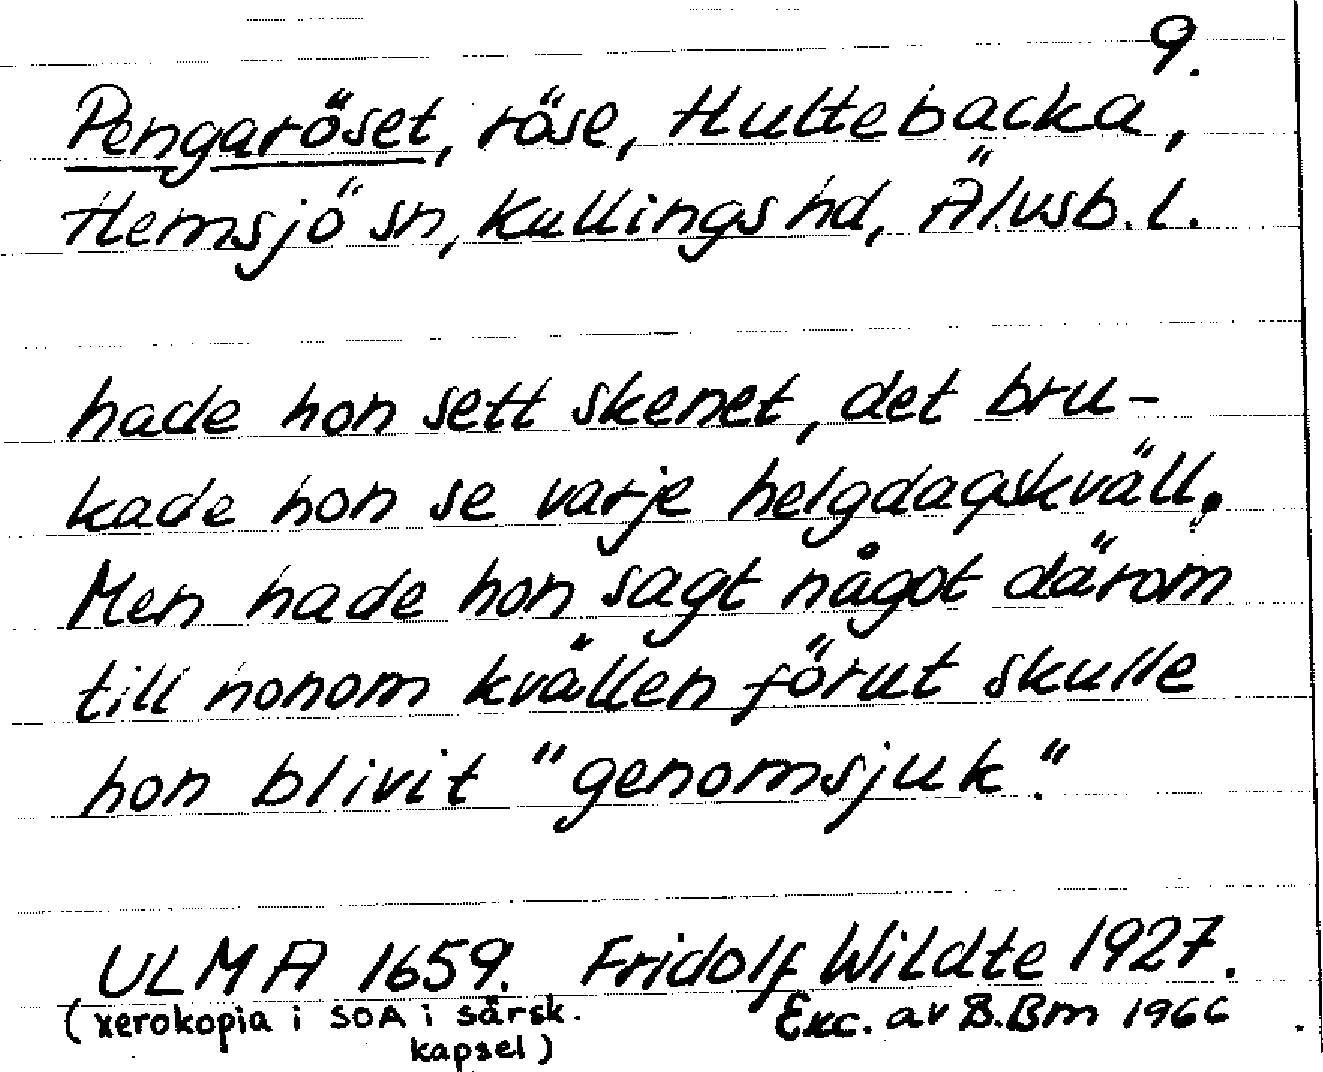 9.
Pengaröset, röse, Hultebacka,
Hemsjö sn, Kullings hd, Älvsb. l.
hade hon sett skenet, det bru-
kade hon se varje helgdagskväll.
Men hade hon sagt något därom
till honom kvällen förut skulle
hon blivit "genomsjuk."
ULMA 1659. Fridolf Wildte 1927.
(xerokopia i SOA i särsk.
kapsel)
Exc. av B.Bm 1966